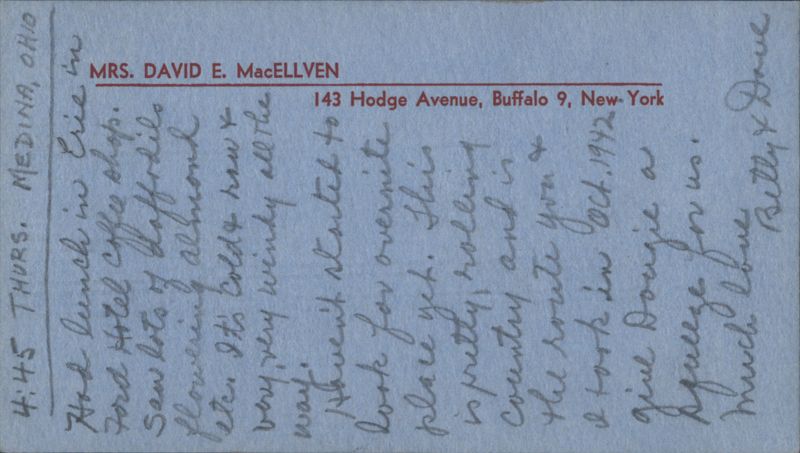 MRS. DAVID E. MacELLVEN
143 Hodge Avenue, Buffalo 9, New York
4:45 THURS. MEDINA, OHIO
Had lunch in Erie in
Ford Hotel Coffee shop.
Saw lots of daffodils
flowering almond
etc. It's cold & raw &
very, very windy all the
way.
Haven't started to
look for overnite
place yet. This
is pretty, rolling
country and is
the route you &
I took in Oct. 1942
give Dougie a
squeeze for us.
Much love
Betty & Dave